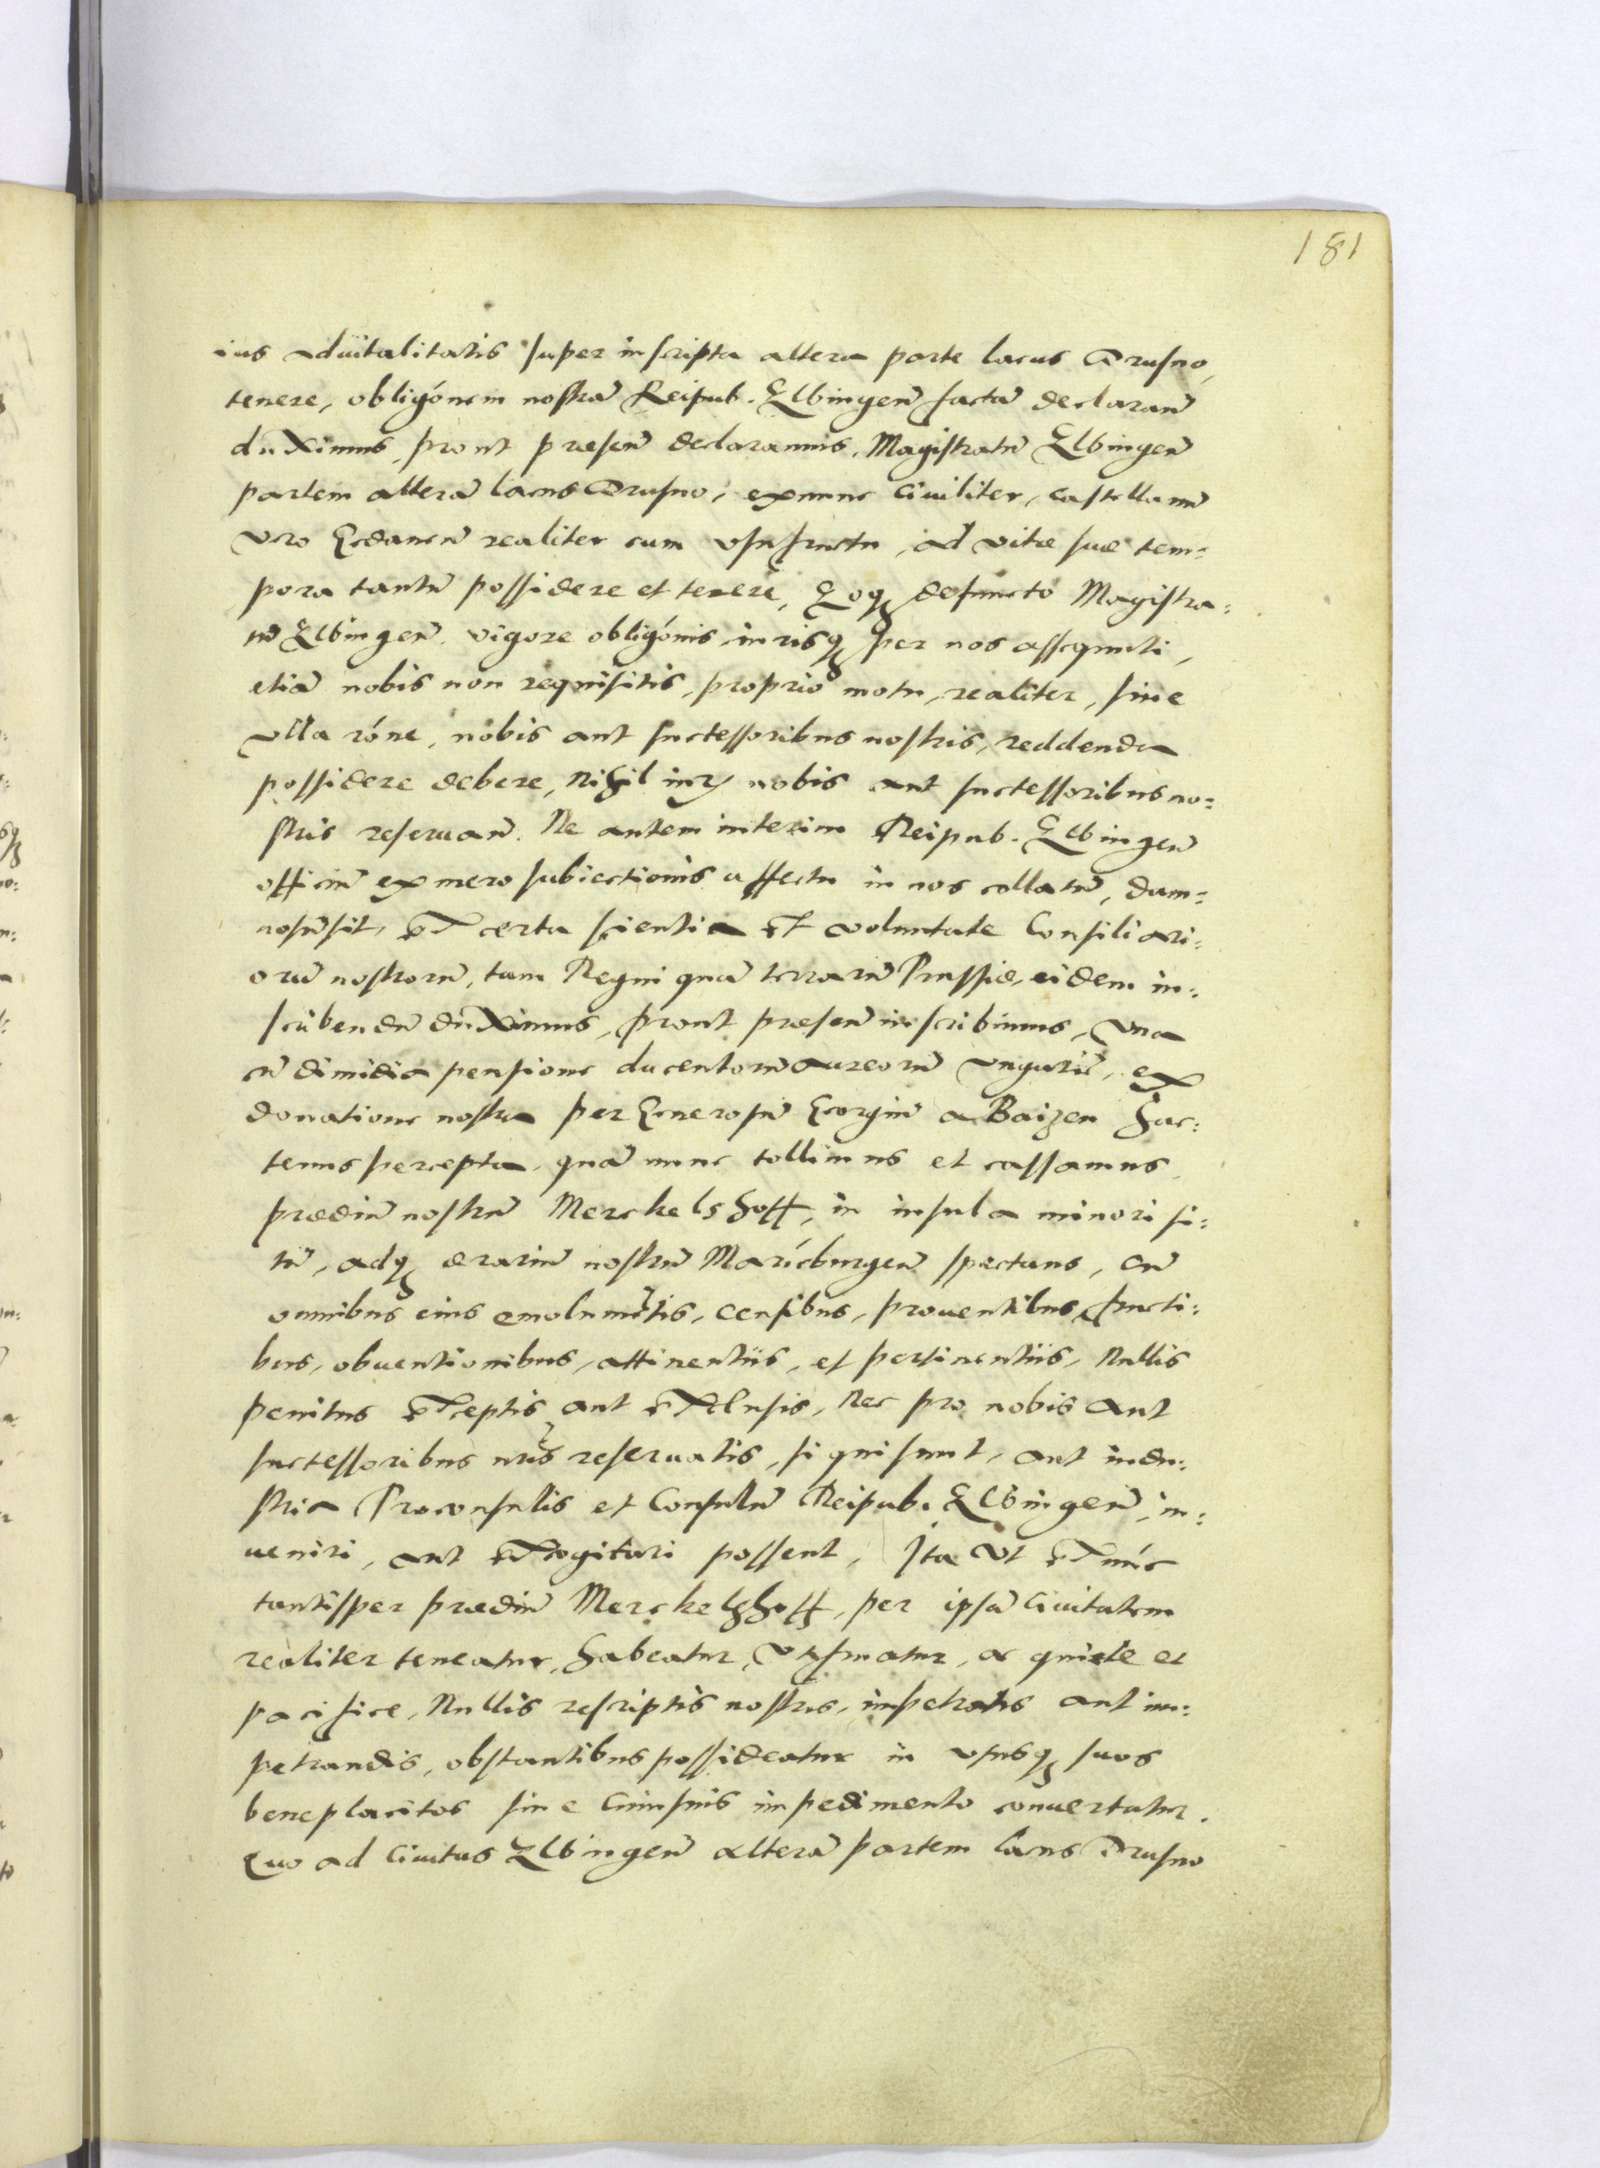 181
ius aduitalitatis super inscripta altera parte lacus Drusno,
tenere, obligónem nostrā Reipub. Elbingeñ factā declarañ
duximus, prout præseñ declaramus, Magistratū Elbingeñ
partem alterā lacus Drusno, exnunc ciuiliter, castellanū
vero Gedaneñ realiter cum vsufructu, ad vitæ suæ tem=
pora tantū possidere et tenere, Eoq; defuncto Magistra=
tū Elbingeñ. vigore obligónis iurisq; per nos assequuti,
etiā nobis non requisitis, proprio motu, realiter, sine
vlla róne, nobis aut successoribus nostris, reddenda
possidere debere, Nihil iuris nobis aut successoribus no=
stris reseruañ. Ne autem interim Reipub. Elbingeñ
officiū ex mero subiectionis affectu in nos collatū, dam=
nosū sit, Ex certa scientia et voluntate Consiliari=
orū nostrorū, tam Regni quā terrarū Prussiæ, eidem in=
scribendū duximus, prout præseñ inscribimus, vna
cū dimidia pensione ducentorū aureorū vngaric̄, ex
donatione nostra per Generosū Georgiū a Baizen hac=
tenus percepta, quā nunc tollimus et cassamus,
prædiū nostrū Merckelshoff, in insula minori si=
tū, adq; ærariū nostrū Mariæburgeñ spectans, cū
omnibus eius emolumētis, censibus, prouentibus, fructi=
bus, obuentionibus, attinentiis, et pertinentiis, Nullis
penitus exceptis aut exclusis, Nec pro nobis aut
successoribus nr̄is reseruatis, si qui sunt, aut indu=
stria Proconsulis et Consulū Reipub. Elbingeñ, in=
ueniri, aut excogitari possent, Ita vt ex nūc
tantisper prædiū Merckelshoff, per ipsā Ciuitatem
realiter teneatur, habeatur, vtifruatur, ac quiete et
pacifice, Nullis rescriptis nostris, impetratis aut im=
petrandis, obstantibus possideatur in vsusq; suos
beneplacitos sine cuiusuis impedimento conuertatur.
Quo ad Ciuitas Elbingeñ alterā partem lacus Drusno